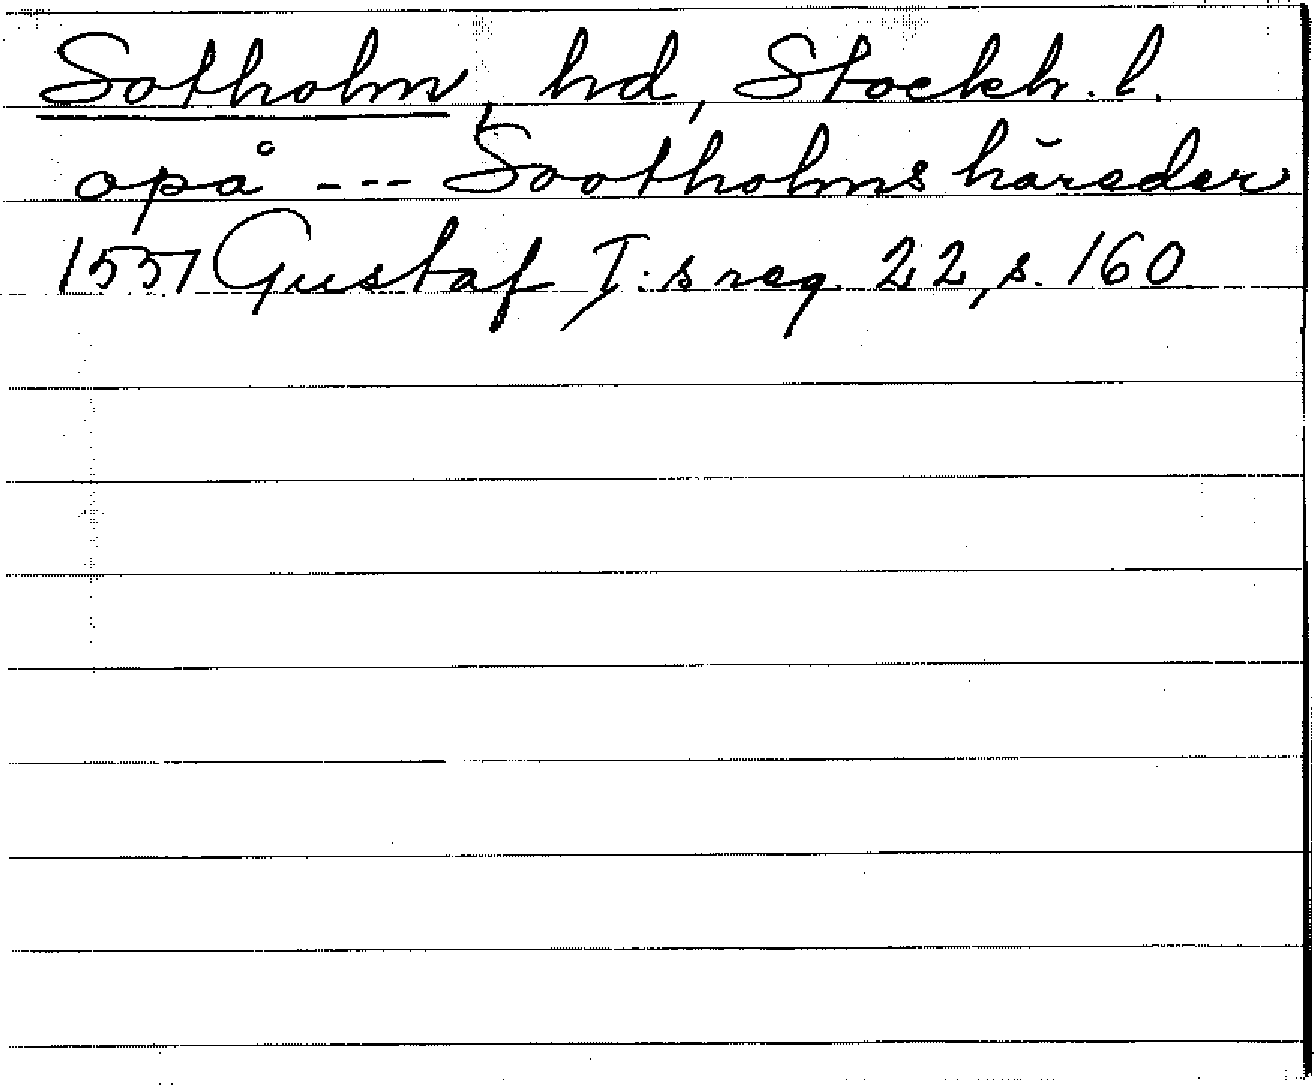 Sotholm, hd, Stockh. l.
opå --- Sootholms häreder
1551 Gustaf I:s reg. 22, s. 160